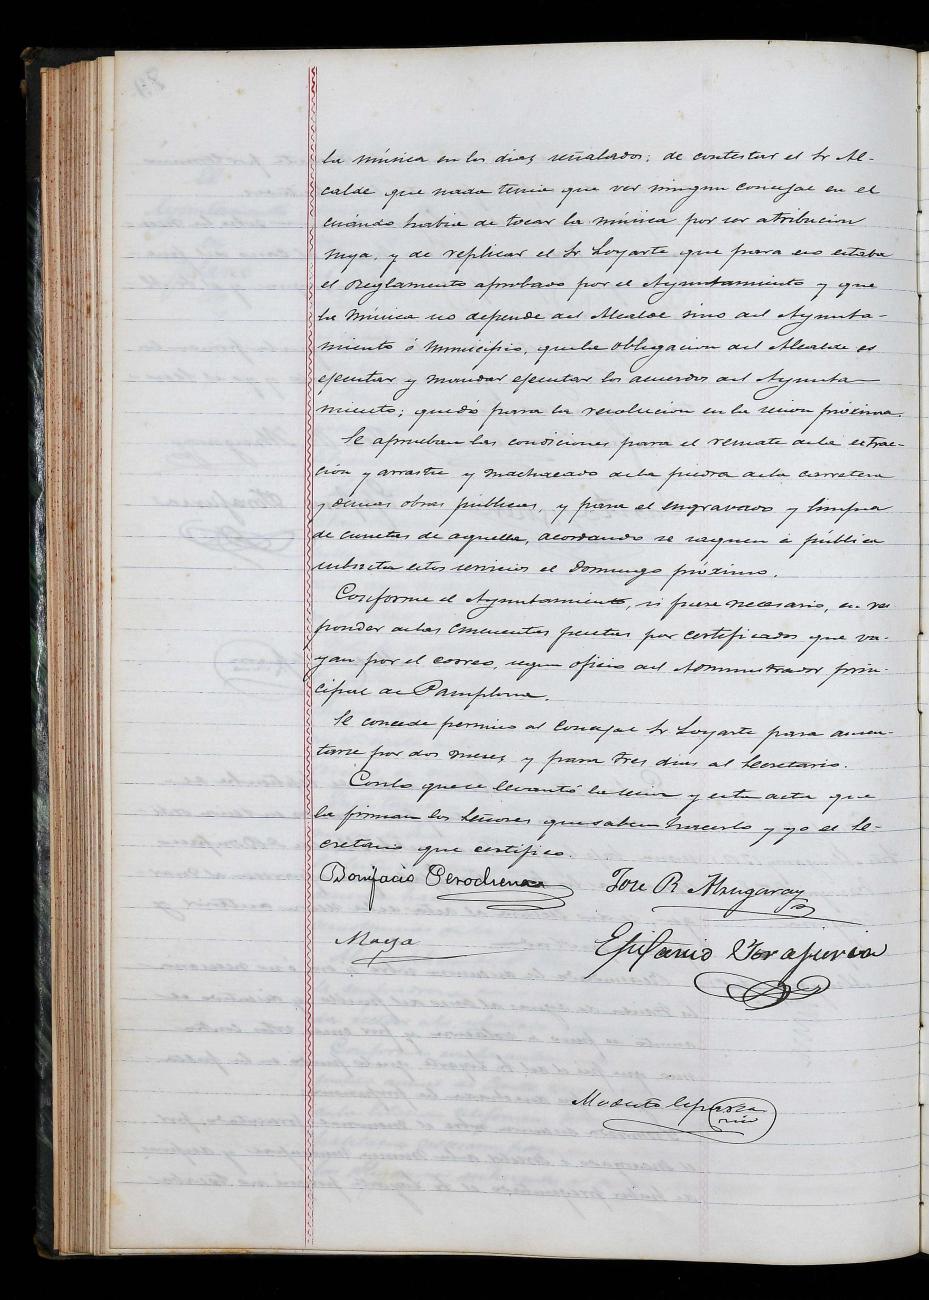 la música en los dias señalados; de contestar el Sr Al-
calde que nada tenia que ver ningun concejal en el
cuándo habia de tocar la música por ser atribucion
suya, y de replicar el Sr Loyarte que para eso estaba
el Reglamento aprobado por el Ayuntamiento y que
la Música no depende del Alcalde sino del Ayunta-
miento ó Municipio, que la obligacion del Alcalde es
ejecutar y mandar ejecutar los acuerdos del Ayunta-
miento; quedó para la resolucion en la sesion próxima.
Se aprueban las condiciones para el remate de la extrac-
ción y arrastre y machacado de la piedra de la carretera
y demas obras públicas, y para el engravado y limpia
de cunetas de aquella, acordando se saquen á pública
subasta estos servicios el Domingo próximo.
Conforme el Ayuntamiento, si fuese necesario, en res
ponder de las cincuenta pesetas por certificados que va-
yan por el correo, segun oficio del Administrador prin-
cipal de Pamplona.
Se concede permiso al Concejal Sr Loyarte para ausen-
tarse por dos meses y para tres dias al Secretario.
Con lo que se levantó la sesion y esta acta que
la firman los Señores que saben hacerlo y yo el Se-
cretario que certifico.
Bonifacio Perochena
Jose R Mugaray
Maya
Epifanio
Modesto
srio